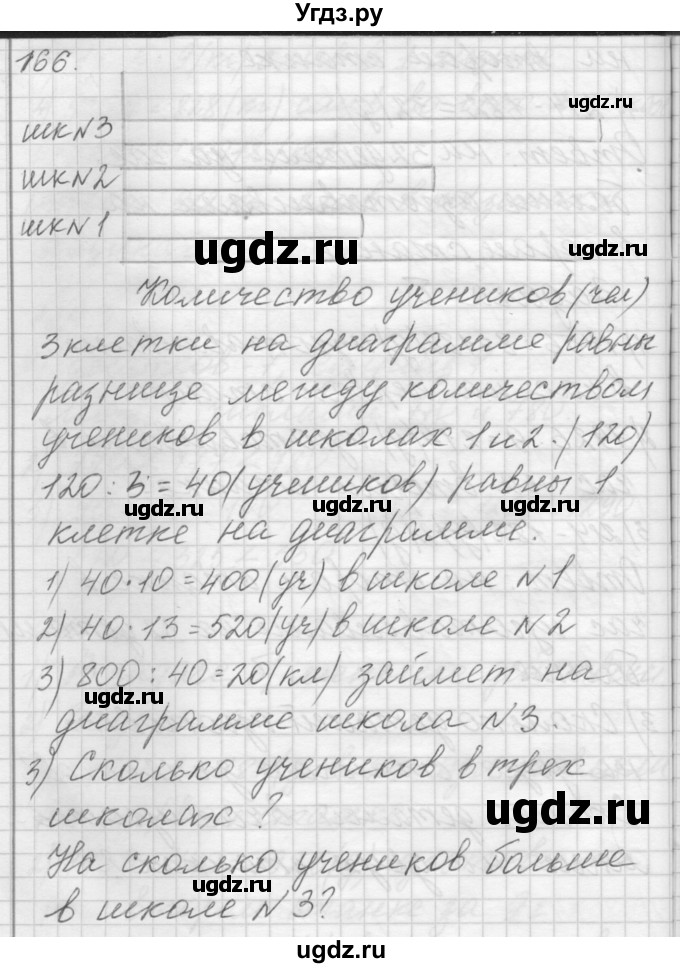 Угдз.ру
166.
шк№3
шк№2
шк№1
ugdz.ru
Количество учеников (чел)
3 клетки на диаграмме равны
разнице между количеством
учеников в школах 1 и 2. (120)
ugdz.ru
120 : 3 = 40 (учеников) равны 1
ugdz.ru
клетке на диаграмме.
1) 40·10=400(уч) в школе №1
2) 40·13=520(уч) в школе №2
3) 800:40=20(кл) займет на
ugdz.ru
диаграмме школа №3.
3) Сколько учеников в трех
школах?
ugdz.ru
На сколько учеников больше
ugdz.ru
в школе №3?
ugdz.ru